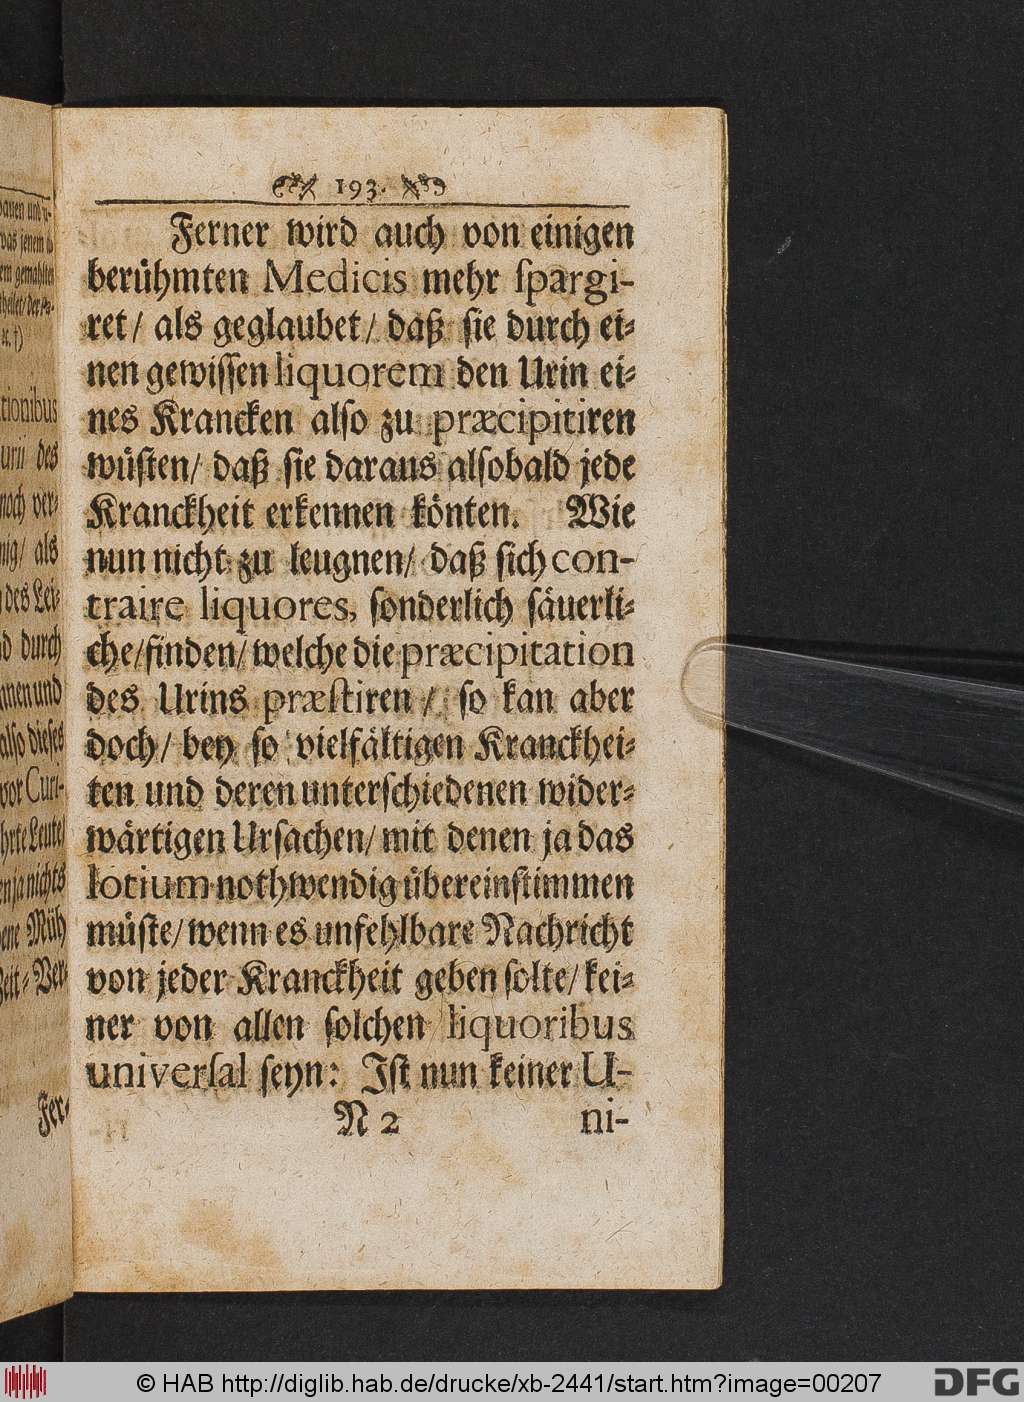 193.
Ferner wird auch von einigen
berühmten Medicis mehr ſpargi-
ret/ als geglaubet/ daß ſie durch ei-
nen gewiſſen liquorem den Urin ei-
nes Krancken alſo zu præcipitiren
wüſten/ daß ſie daraus alſobald jede
Kranckheit erkennen könten. Wie
nun nicht zu leugnen/ daß ſich con-
traire liquores, ſonderlich ſäuerli-
che/finden/ welche die præcipitation
des Urins præſtiren/ ſo kan aber
doch/ bey ſo vielfältigen Kranckhei-
ten und deren unterſchiedenen wider-
wärtigen Urſachen/ mit denen ja das
lotium nothwendig übereinſtimmen
müſte/ wenn es unfehlbare Nachricht
von jeder Kranckheit geben ſolte/ kei-
ner von allen ſolchen liquoribus
univerſal ſeyn: Iſt nun keiner U-
N 2 ni-
tionibus
urii des
noch ver-
nig/ als
des Lei-
nd durch
nnen und
alſo dieſes
vor Curi-
hrte Leute/
en ja nichts
ene Müh
Zeit- Ver-
Fer-
© HAB http://diglib.hab.de/drucke/xb-2441/start.htm?image=00207
DFG